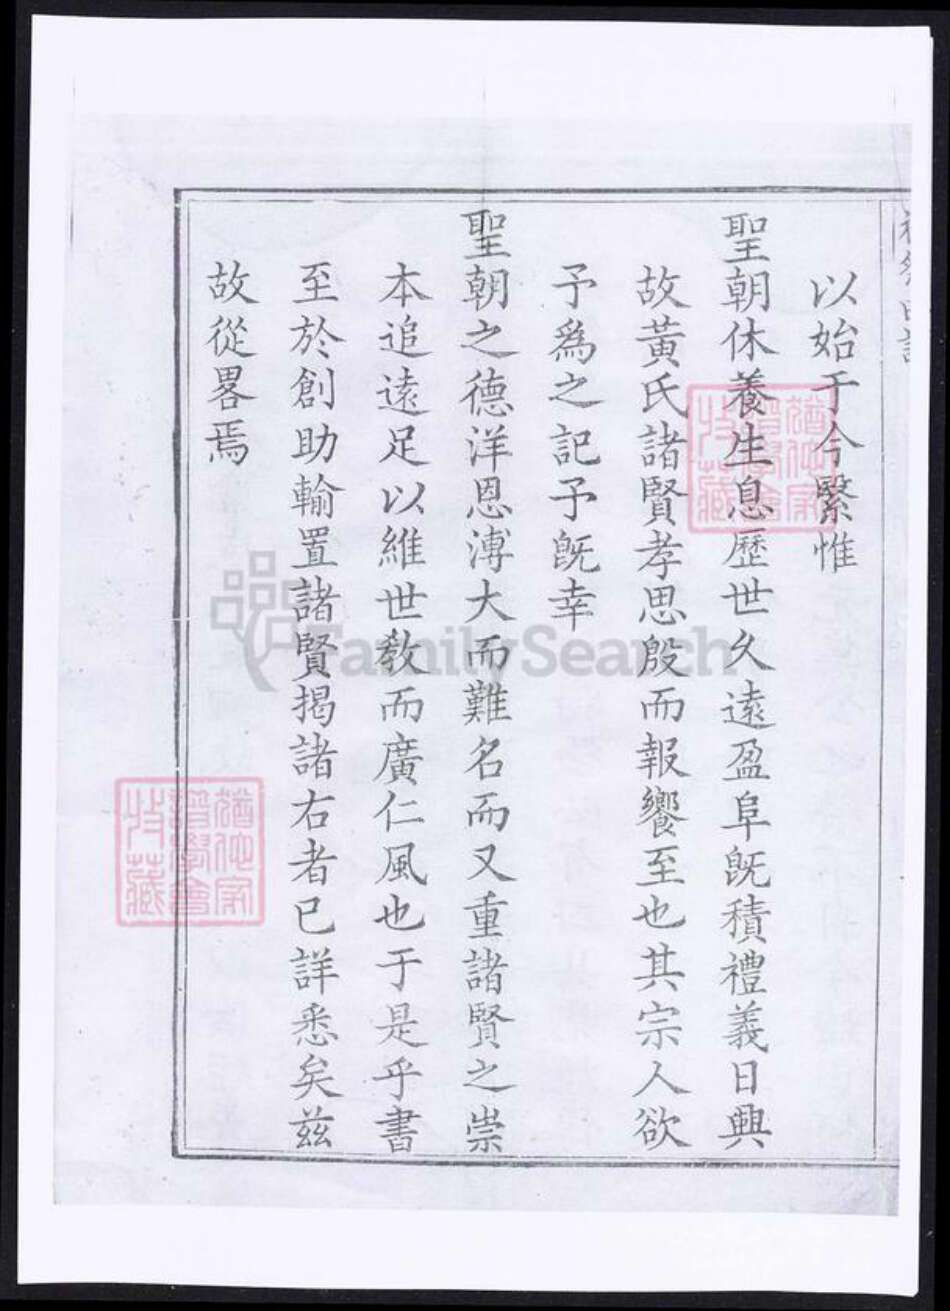 以始于今繄惟
聖朝休養生息歷世久遠盈阜旣積禮義日興
故黃氏諸賢孝思殷而報饗至也其宗人欲
予爲之記予旣幸
聖朝之德洋恩溥大而難名而又重諸賢之崇
本追遠足以維世敎而廣仁風也于是乎書
至於創助輸置諸賢揭諸右者已詳悉矣茲
故從畧焉
FamilySearch